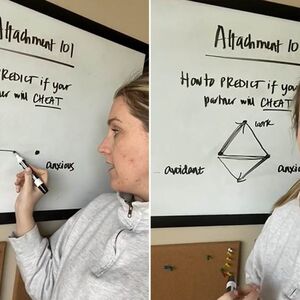 Attachment 101
PREDICT if your
partner will CHEAT
anxious
Attachment 10
How to PREDICT if your
partner will CHEAT
work
avoidant
anxi